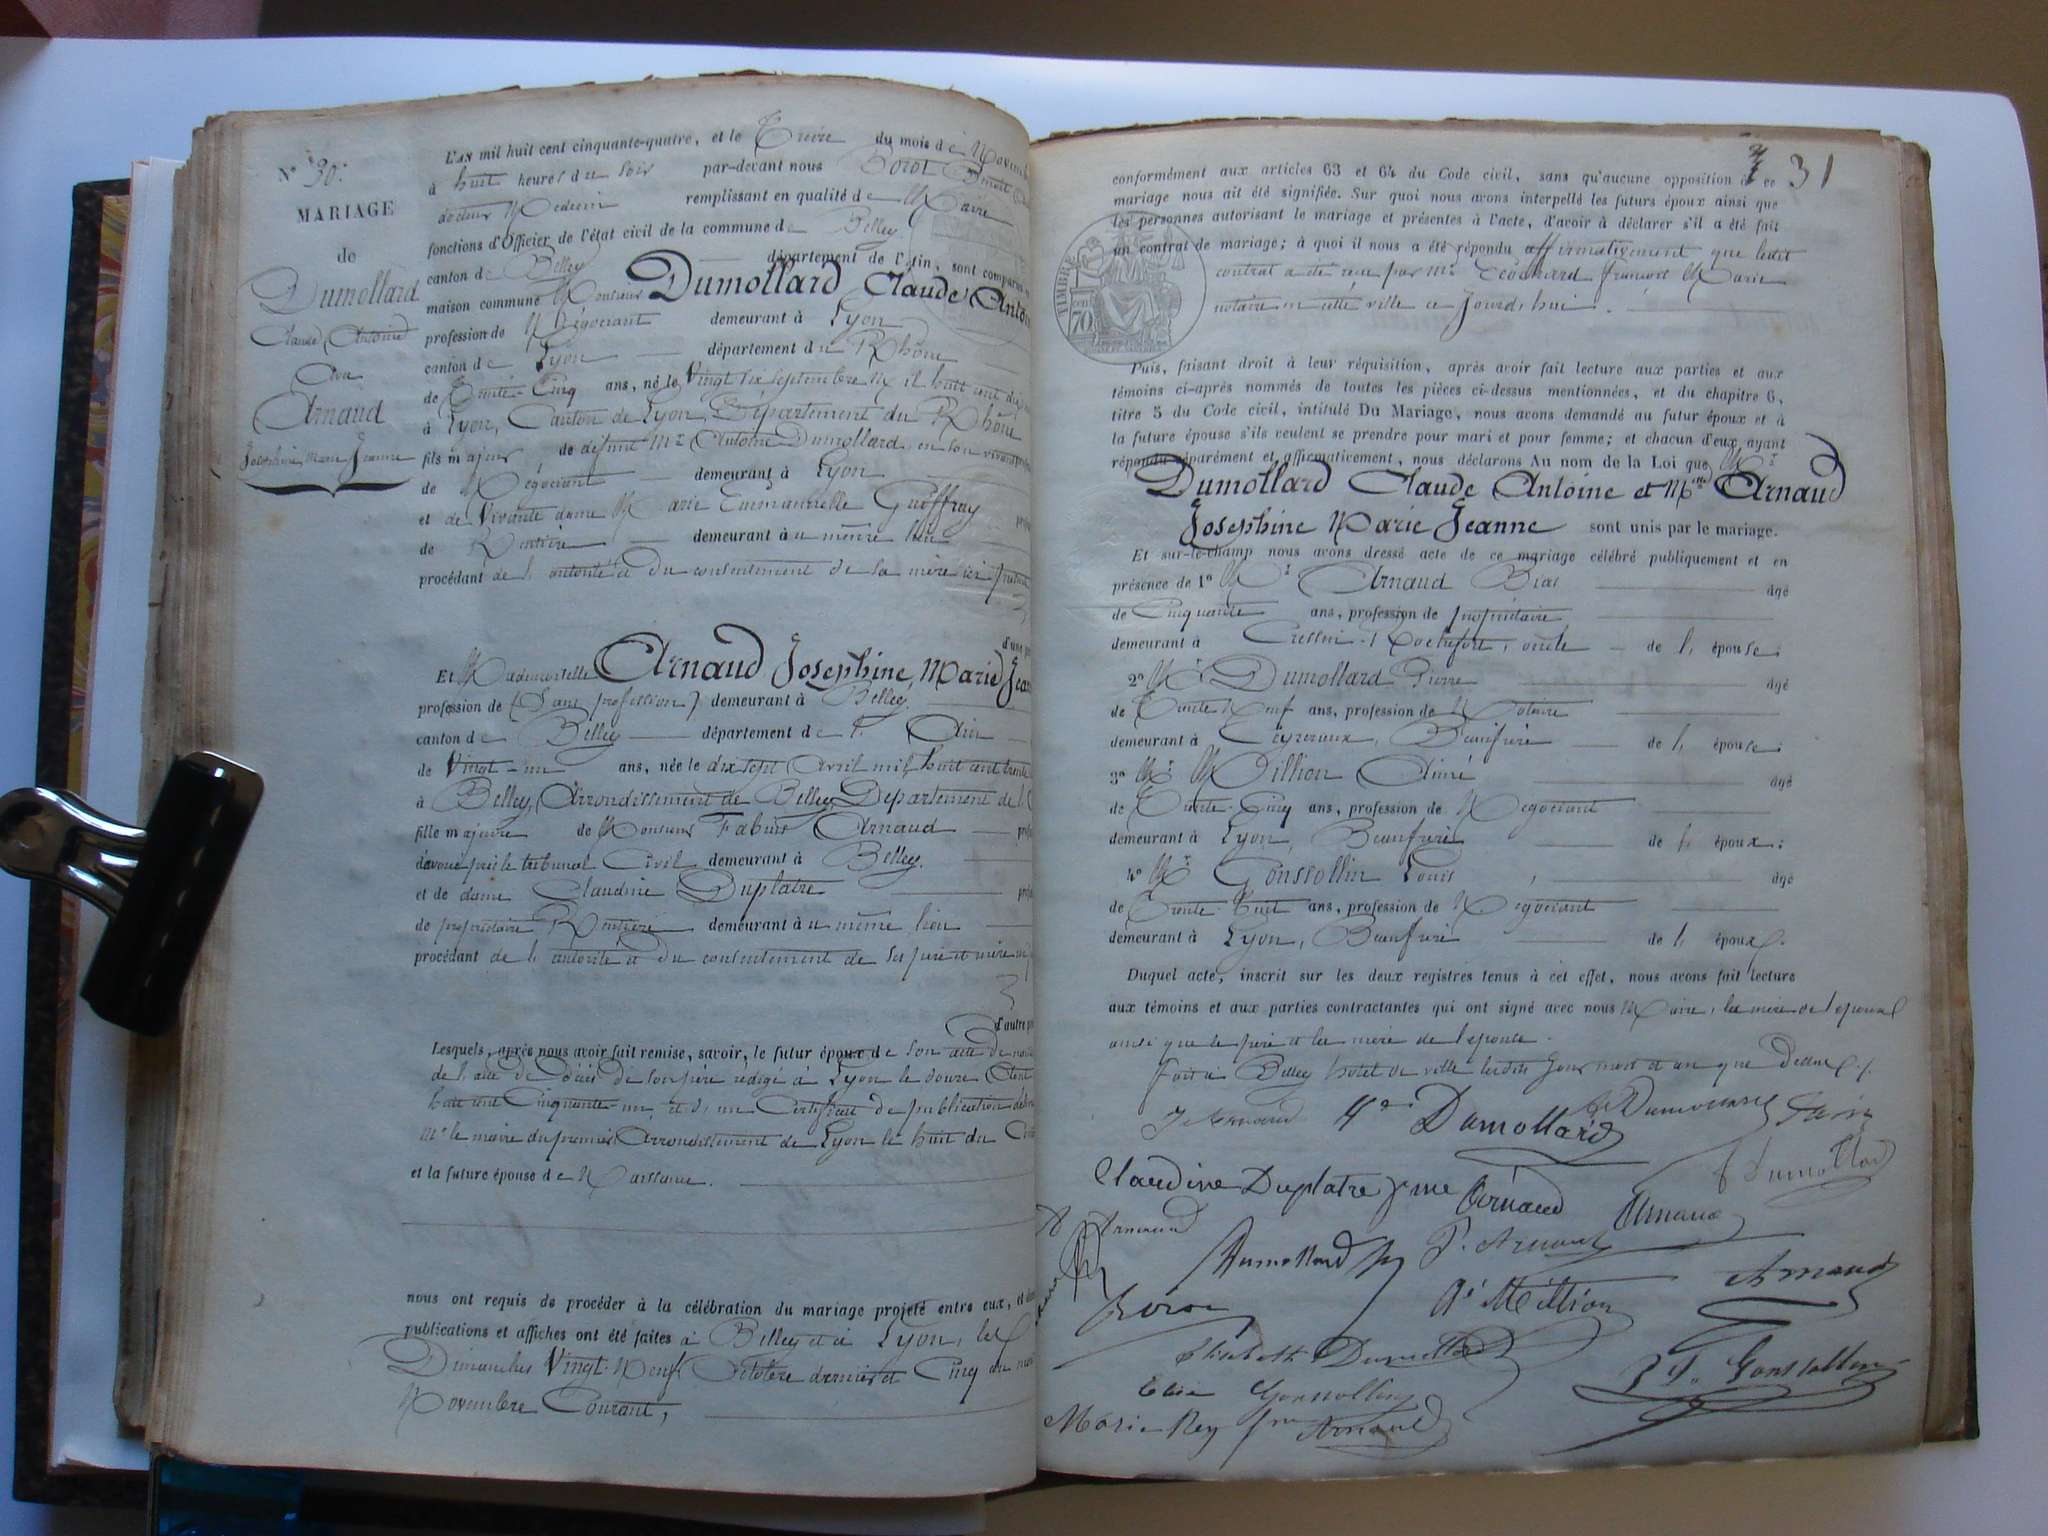 N° 30.
MARIAGE
de
Dumollard
Claude Antoine
Avec
Arnaud
Josephine Marie Jeanne
L'AN mil huit cent cinquante-quatre, et le Treize du mois de Novem
à huit heures du soir par-devant nous Benoit
docteur Medecin remplissant en qualité de Maire
fonctions d'Officier de l'état civil de la commune de Belley
canton de Belley département de l'Ain, sont comparus
maison commune Monsieur Dumollard Claude Antoi
profession de Négociant demeurant à Lyon
canton de Lyon département du Rhône
de Trente-Cinq ans, né le Vingt six Septembre Mil huit cent dix
à Lyon, Canton de Lyon, Département du Rhône
fils majeur de défunt Mr Antoine Dumollard, en son vivant
de Négociant demeurant à Lyon
et de Vivante dame Marie Emmanuelle Guiffray
de Rentière demeurant au même lieu
procédant de l'autorité et du consentement de sa mère ici
d'une pa
Et Mademoiselle Arnaud Josephine, Marie Jean
profession de (Sans profession) demeurant à Belley.
canton de Belley département de l'Ain
de Vingt-un ans, née le dix sept Avril mil huit cent trente
à Belley, Arrondissement de Belley, Département de l'
fille majeure de Monsieur Arnaud
d'avoué près le tribunal Civil demeurant à Belley.
et de dame Claudine Duplatre
de propriétaire Rentière demeurant au même lieu
procédant de l'autorité et du consentement de ses père et mère
d'autre pa
Lesquels, après nous avoir fait remise, savoir, le futur époux de son acte de nai
de l'acte de Décès de son père rédigé à Lyon le douze
huit cent Cinquante-un, et d'un Certificat de publication
Mr le maire du premier Arrondissement de Lyon le huit du
et la future épouse de Naissance.
nous ont requis de procéder à la célébration du mariage projeté entre eux, et
publications et affiches ont été faites à Belley et à Lyon, les
Dimanches Vingt-Neuf Octobre dernier et Cinq du mois
Novembre Courant,
31
conformément aux articles 63 et 64 du Code civil, sans qu'aucune opposition à ce
mariage nous ait été signifiée. Sur quoi nous avons interpellé les futurs époux ainsi que
les personnes autorisant le mariage et présentes à l'acte, d'avoir à déclarer s'il a été fait
un contrat de mariage; à quoi il nous a été répondu affirmativement que ledit
contrat a été reçu par Mr François Marie
notaire en cette ville ce Jourd'hui.
TIMBRE
70
Puis, faisant droit à leur réquisition, après avoir fait lecture aux parties et aux
témoins ci-après nommés de toutes les pièces ci-dessus mentionnées, et du chapitre 6,
titre 5 du Code civil, intitulé Du Mariage, nous avons demandé au futur époux et à
la future épouse s'ils veulent se prendre pour mari et pour femme; et chacun d'eux ayant
répondu séparément et affirmativement, nous déclarons Au nom de la Loi que Mr
Dumollard Claude Antoine et Mlle Arnaud
Josephine Marie Jeanne sont unis par le mariage.
Et sur-le-champ nous avons dressé acte de ce mariage célébré publiquement et en
présence de 1° Mr Arnaud Bias âgé
de Cinquante ans, profession de propriétaire
demeurant à Cressin-Rochefort, oncle de l'épouse;
2° Mr Dumollard Pierre âgé
de Trente Neuf ans, profession de Notaire
demeurant à Ceyzerieux, Beaufrère de l'épouse;
3° Mr Million Aimé âgé
de Trente-Cinq ans, profession de Négociant
demeurant à Lyon, Beaufrère de l'époux;
4° Mr Gonssollin Louis âgé
de Trente-huit ans, profession de Négociant
demeurant à Lyon, Beaufrère de l'époux.
Duquel acte, inscrit sur les deux registres tenus à cet effet, nous avons fait lecture
aux témoins et aux parties contractantes qui ont signé avec nous Maire, la mère de l'époux
ainsi que le père et la mère de l'épouse.
fait à Belley hotel de ville lesdits Jour mois et an que dessus.
J Arnaud Dumollard
Claudine Duplatre fme Arnaud Arnaud
Dumollard
Arnaud
Dumollard P. Arnaud
Arnaud
Aé Million
Elisabeth Dumollard
Gonssollin
Elisa Gonssollin
Marie Rey fme Arnaud